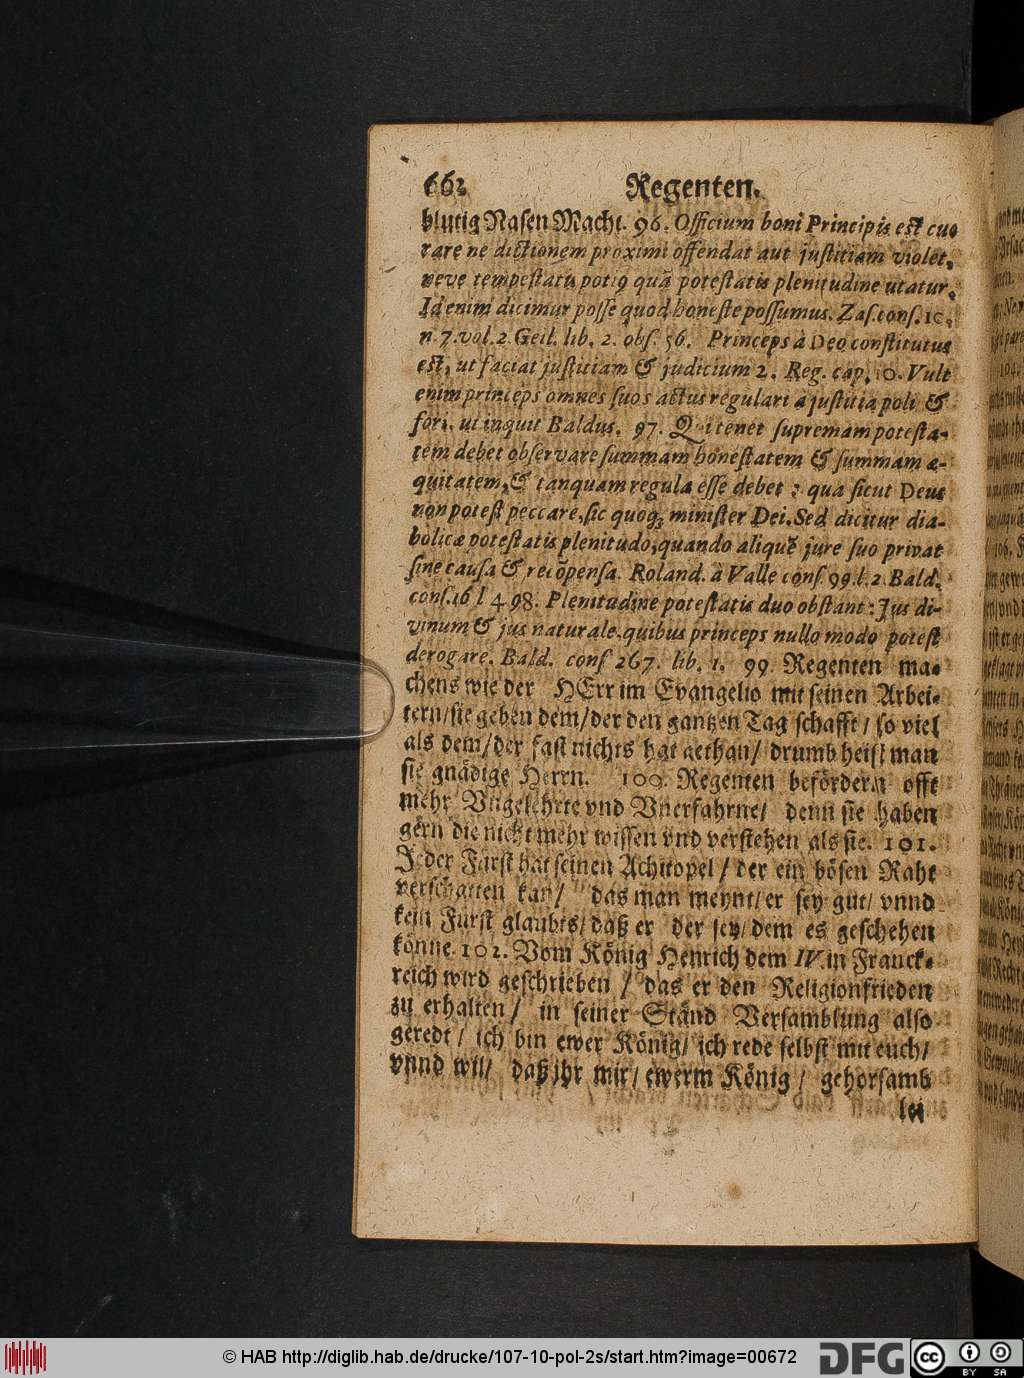 662 Regenten.
blutig Nasen Macht. 96. Officium boni Principis est cu⸗
rare ne dictionem proximi offendat aut justitiam violet,
neve tempestatis potiq quã potestatis plenitudine utatur.
Id enim dicimur posse quod honeste possumus. Zas. cons. 10.
n. 7. vol. 2. Geil. lib. 2. obs. 56. Princeps à Deo constitutus
est, ut faciat justitiam & judicium 2. Reg. cap. 10. Vult
enim princeps omnes suos actus regulari à justitia poli &
fori. ut inquit Baldus. 97. Qui tenet supremam potesta-
tem debet observare summam honestatem & summam æ-
quitatem, & tanquam regula esse debet: qua sicut Deus
non potest peccare, sic quoq; minister Dei. Sed dicitur dia-
bolicæ potestatis plenitudo, quando aliquẽ jure suo privat
sine causa & recõpensa. Roland. à Valle cons. 99. l. 2. Bald.
cons. 16 l 4. 98. Plenitudine potestatis duo obstant: Jus di-
vinum & jus naturale, quibus princeps nullo modo potest
derogare. Bald. cons 267. lib. 1. 99 Regenten ma⸗
chens wie der HErr im Evangelio mit seinen Arbei⸗
tern/ sie geben dem/ der den gantzen Tag schafft/ so viel
als dem/ der fast nichts hat gethan/ drumb heist man
sie gnädige Herrn. 100. Regenten befördern offt
mehr Vngelehrte vnd Vnerfahrne/ denn sie haben
gern die nicht mehr wissen vnd verstehen als sie. 101.
Jeder Fürst hat seinen Achitopel/ der ein bösen Raht
verschatten kan/ das man meynt/ er sey gut/ vnnd
kein Fürst glaubts/ daß er der sey/ dem es geschehen
könne. 102. Vom König Henrich dem IV. in Franck⸗
reich wird geschrieben/ das er den Religionfrieden
zu erhalten/ in seiner Ständ Versamblung also
geredt/ ich bin ewer König/ ich rede selbst mit euch/
vnnd wil/ daß jhr mir/ ewerm König/ gehorsamb
lei
© HAB http://diglib.hab.de/drucke/107-10-pol-2s/start.htm?image=00672
DFG
cc BY SA